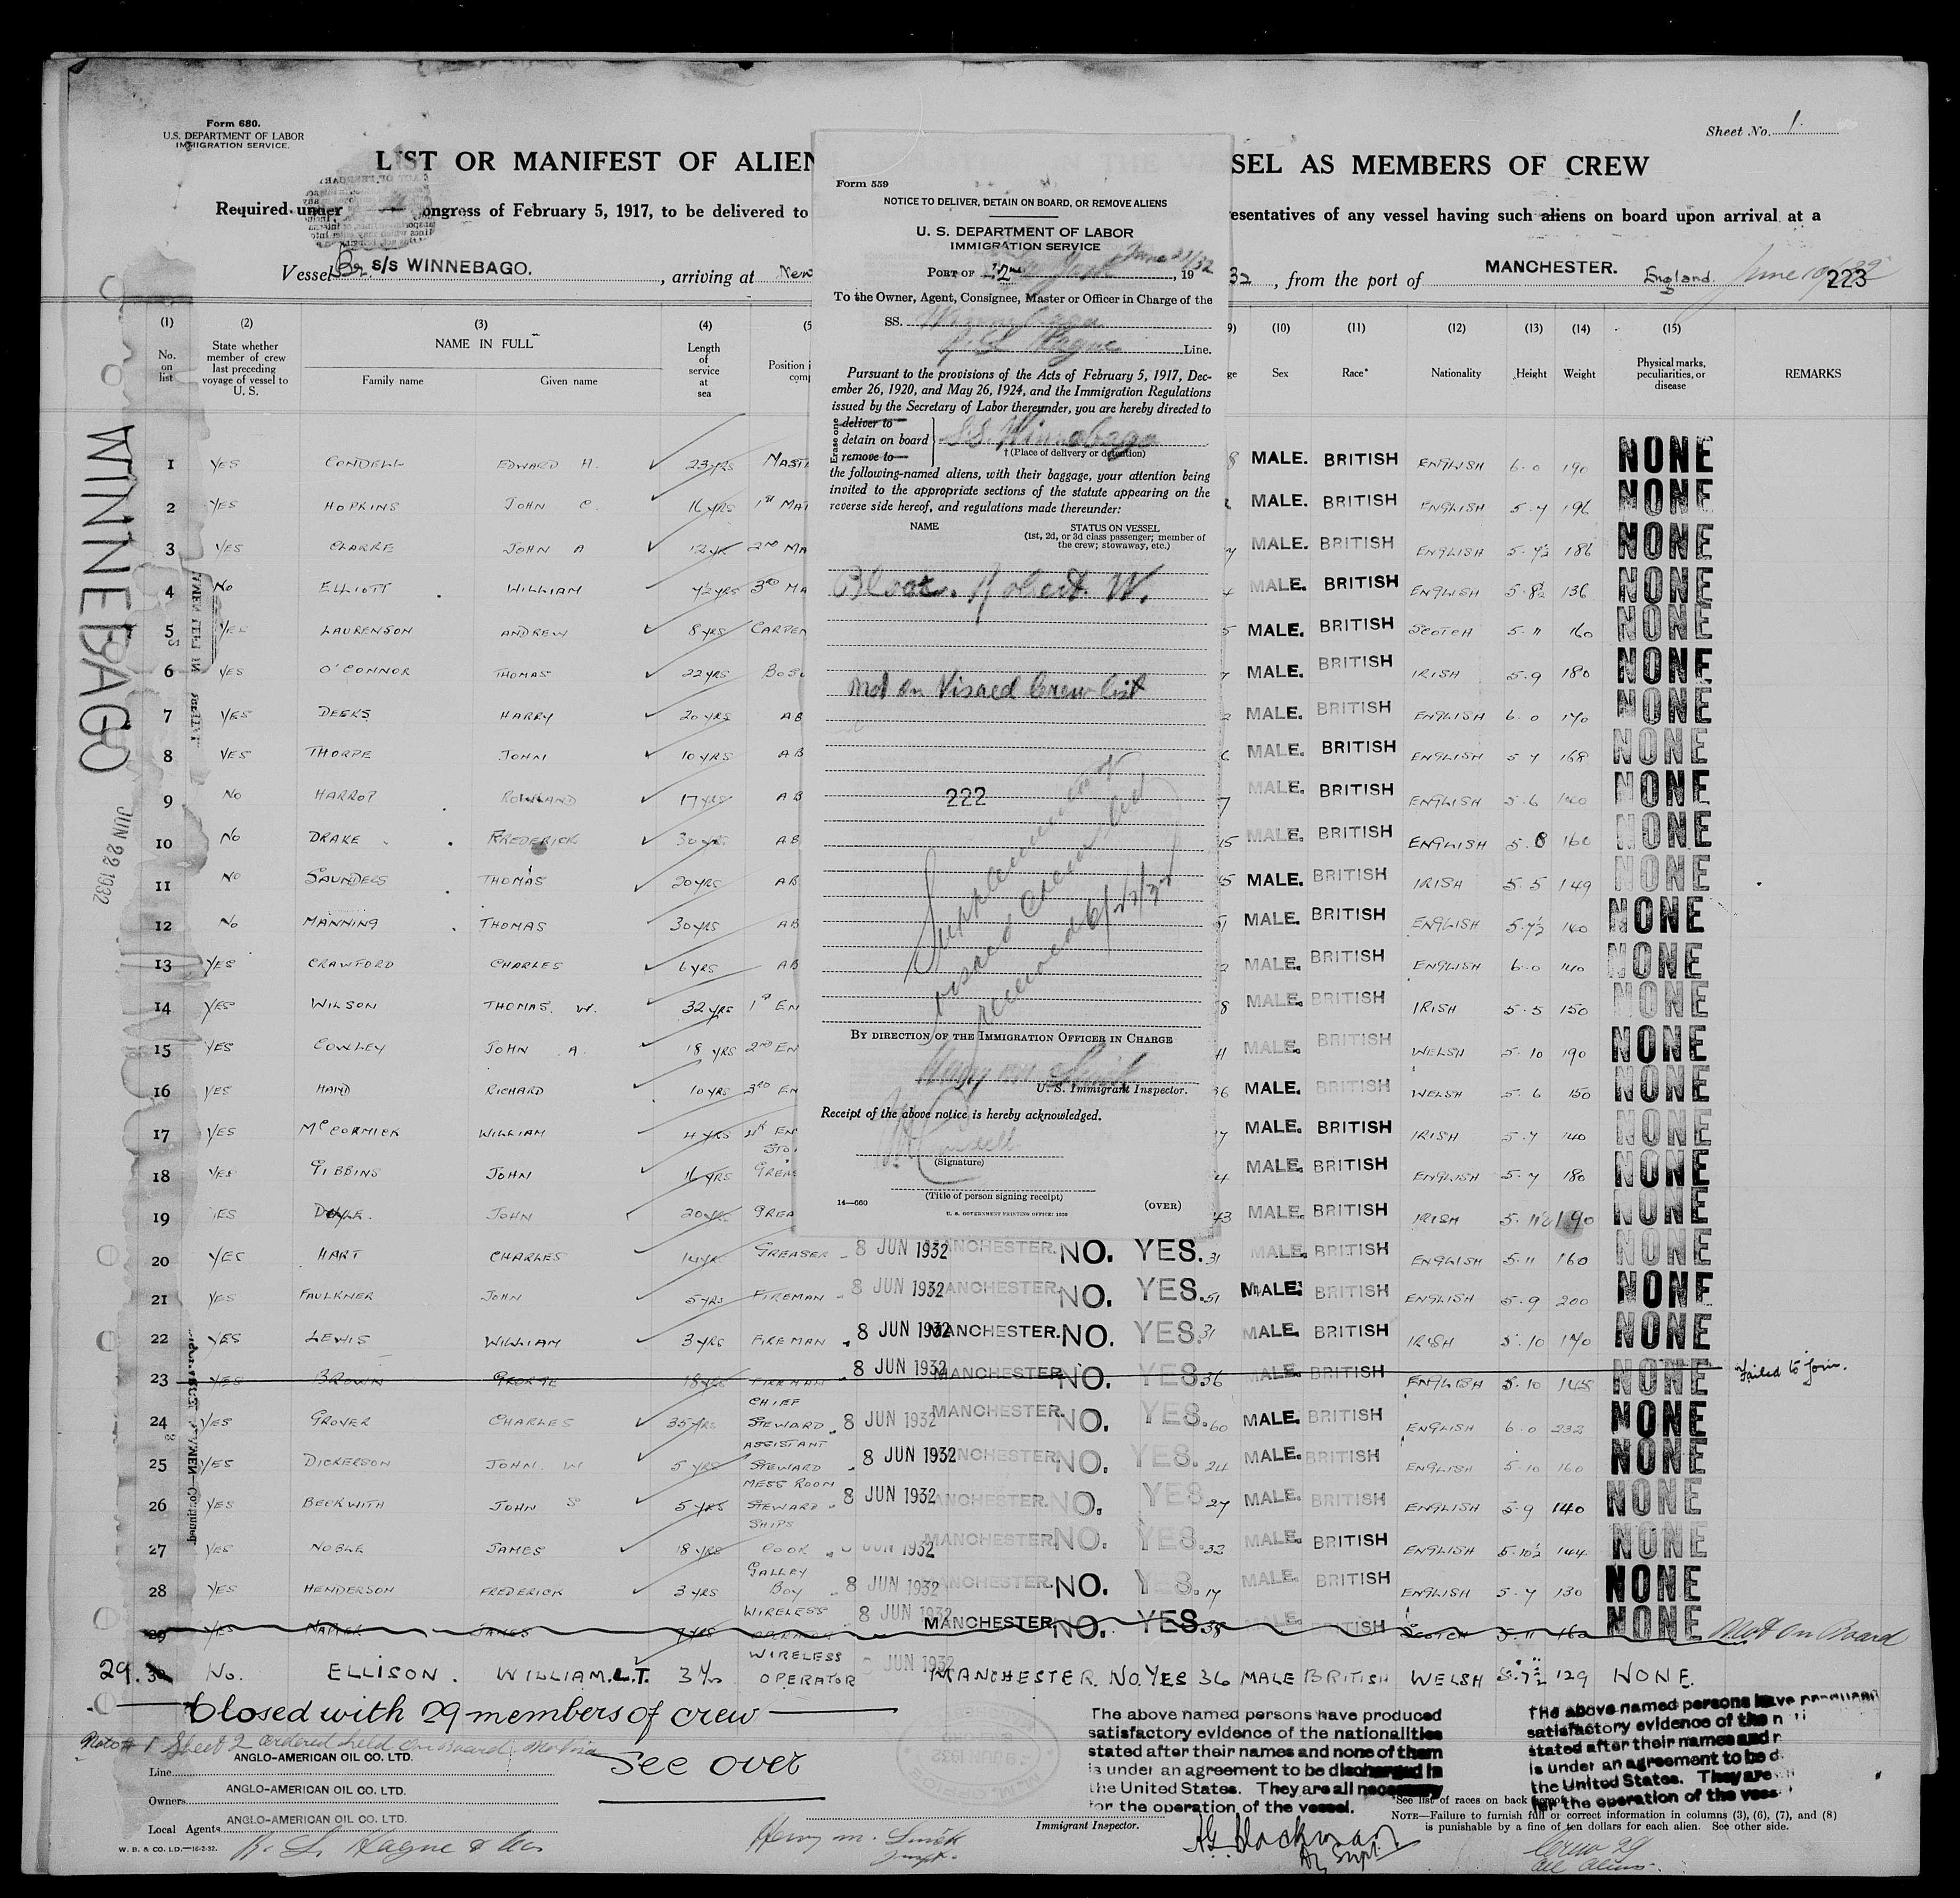 Form 680.
U.S. DEPARTMENT OF LABOR
IMMIGRATION SERVICE.
Sheet No. 1.
LIST OR MANIFEST OF ALIEN
SEL AS MEMBERS OF CREW
Required under ongress of February 5, 1917, to be delivered to
resentatives of any vessel having such aliens on board upon arrival at a
Vessel Br. S/S WINNEBAGO. , arriving at New
32 , from the port of MANCHESTER. England. June 10/32
223
WINNEBAGO
JUN 22 1932
(1) (2) (3) (4) (5
No. on list
State whether member of crew last preceding voyage of vessel to U. S.
NAME IN FULL
Family name Given name
Length of service at sea
Position i comp
9) (10) (11) (12) (13) (14) (15)
ge Sex Race* Nationality Height Weight
Physical marks, peculiarities, or disease
REMARKS
Form 559
NOTICE TO DELIVER, DETAIN ON BOARD, OR REMOVE ALIENS
U. S. DEPARTMENT OF LABOR
IMMIGRATION SERVICE
PORT OF York June 22/32, 19
To the Owner, Agent, Consignee, Master or Officer in Charge of the
SS. Winnebago
R. L. Hague Line.
Pursuant to the provisions of the Acts of February 5, 1917, Dec-
ember 26, 1920, and May 26, 1924, and the Immigration Regulations
issued by the Secretary of Labor thereunder, you are hereby directed to
Erase one
deliver to
detain on board SS. Winnebago
remove to
† (Place of delivery or detention)
the following-named aliens, with their baggage, your attention being
invited to the appropriate sections of the statute appearing on the
reverse side hereof, and regulations made thereunder:
NAME STATUS ON VESSEL
(1st, 2d, or 3d class passenger; member of
the crew; stowaway, etc.)
Robert W.
not on Visaed Crew list
222
Supplementary
visaed crew list
received 6/22/32
BY DIRECTION OF THE IMMIGRATION OFFICER IN CHARGE
Henry M. Smith
U. S. Immigrant Inspector.
Receipt of the above notice is hereby acknowledged.
(Signature)
(Title of person signing receipt)
14—660 U. S. GOVERNMENT PRINTING OFFICE: 1930 (OVER)
1 YES CONDELL EDWARD H. 23 YRS MAST 8 MALE. BRITISH ENGLISH 6.0 190 NONE
2 YES HOPKINS JOHN C. 16 YRS 1ST MAT MALE. BRITISH ENGLISH 5.7 196 NONE
3 YES CLARKE JOHN A 12 YR 2ND MA MALE. BRITISH ENGLISH 5.7½ 186 NONE
4 NO ELLIOTT WILLIAM 7½ YRS 3RD MA 4 MALE. BRITISH ENGLISH 5.8½ 136 NONE
5 YES LAURENSON ANDREW 8 YRS CARPEN 5 MALE. BRITISH SCOTCH 5.11 160 NONE
6 YES O'CONNOR THOMAS 22 YRS BOS MALE. BRITISH IRISH 5.9 180 NONE
7 YES DEEKS HARRY 20 YRS AB 2 MALE. BRITISH ENGLISH 6.0 170 NONE
8 YES THORPE JOHN 10 YRS AB 6 MALE. BRITISH ENGLISH 5 7 168 NONE
9 NO HARROP ROWLAND 17 YRS AB 7 MALE. BRITISH ENGLISH 5.6 NONE
10 NO DRAKE FREDERICK 30 YRS AB 5 MALE. BRITISH ENGLISH 5.8 160 NONE
11 NO SAUNDERS THOMAS 20 YRS AB 5 MALE. BRITISH IRISH 5.5 149 NONE
12 NO MANNING THOMAS 30 YRS AB 51 MALE. BRITISH ENGLISH 5.7½ 140 NONE
13 YES CRAWFORD CHARLES 6 YRS AB 2 MALE. BRITISH ENGLISH 6.0 170 NONE
14 YES WILSON THOMAS. W. 32 YRS 1ST EN 8 MALE. BRITISH IRISH 5.5 150 NONE
15 YES COWLEY JOHN A. 18 YRS 2ND EN 41 MALE. BRITISH WELSH 5.10 190 NONE
16 YES HAND RICHARD 10 YRS 3RD EN 36 MALE. BRITISH WELSH 5.6 150 NONE
17 YES McCORMICK WILLIAM 4 YRS 4TH EN 27 MALE. BRITISH IRISH 5.7 140 NONE
18 YES GIBBINS JOHN 16 YRS STO. GREAS 4 MALE. BRITISH ENGLISH 5.7 180 NONE
19 YES DOYLE. JOHN 20 YRS GREA 43 MALE. BRITISH IRISH 5.11½ 190 NONE
20 YES HART CHARLES 14 YR GREASER 8 JUN 1932 MANCHESTER. NO. YES. 31 MALE. BRITISH ENGLISH 5.11 160 NONE
21 YES FAULKNER JOHN 5 YRS FIREMAN 8 JUN 1932 MANCHESTER. NO. YES. 51 MALE. BRITISH ENGLISH 5.9 200 NONE
22 YES LEWIS WILLIAM 3 YRS FIREMAN 8 JUN 1932 MANCHESTER. NO. YES. 31 MALE. BRITISH IRISH 5.10 170 NONE
23 YES BROWN GEORGE 18 YRS FIREMAN 8 JUN 1932 MANCHESTER NO. YES. 36 MALE. BRITISH ENGLISH 5.10 145 NONE Failed to join.
24 YES GROVER CHARLES 35 YRS CHIEF STEWARD 8 JUN 1932 MANCHESTER. NO. YES. 60 MALE. BRITISH ENGLISH 6.0 232 NONE
25 YES DICKERSON JOHN. W 5 YRS ASSISTANT STEWARD 8 JUN 1932 MANCHESTER. NO. YES. 24 MALE. BRITISH ENGLISH 5.10 160 NONE
26 YES BECKWITH JOHN S 5 YRS MESS ROOM STEWARD 8 JUN 1932 MANCHESTER. NO. YES. 27 MALE. BRITISH ENGLISH 5.9 140 NONE
27 YES NOBLE JAMES 18 YRS SHIPS COOK 8 JUN 1932 MANCHESTER. NO. YES. 32 MALE. BRITISH ENGLISH 5.10½ 144 NONE
28 YES HENDERSON FREDERICK 3 YRS GALLEY BOY 8 JUN 1932 MANCHESTER. NO. YES. 17 MALE. BRITISH ENGLISH 5.7 130 NONE
29 YES JAMES 7 YRS WIRELESS OPERATOR 8 JUN 1932 MANCHESTER. NO. YES. 38 MALE. BRITISH SCOTCH 5.11 160 NONE Not on Board
29. 30 No. ELLISON. WILLIAM. L.T. 3½ WIRELESS OPERATOR JUN 1932 MANCHESTER. NO. YES 36 MALE BRITISH WELSH 5.7½ 129 NONE.
Closed with 29 members of crew
Note # 1 Sheet 2 ordered held on board. No visa
See over
Line ANGLO-AMERICAN OIL CO. LTD.
Owners ANGLO-AMERICAN OIL CO. LTD.
Local Agents ANGLO-AMERICAN OIL CO. LTD.
R. L. Hague & Co.
W. B. & CO. LD.—16-2-32.
Henry M. Smith
Inspt.
Immigrant Inspector.
The above named persons have produced
satisfactory evidence of the nationalities
stated after their names and none of them
is under an agreement to be discharged in
the United States. They are all necessary
for the operation of the vessel.
The above named persons have produced
satisfactory evidence of the n
stated after their names and n
is under an agreement to be d
the United States. They are
for the operation of the vess
*See list of races on back hereof.
NOTE—Failure to furnish full or correct information in columns (3), (6), (7), and (8)
is punishable by a fine of ten dollars for each alien. See other side.
Crew 29
all aliens.